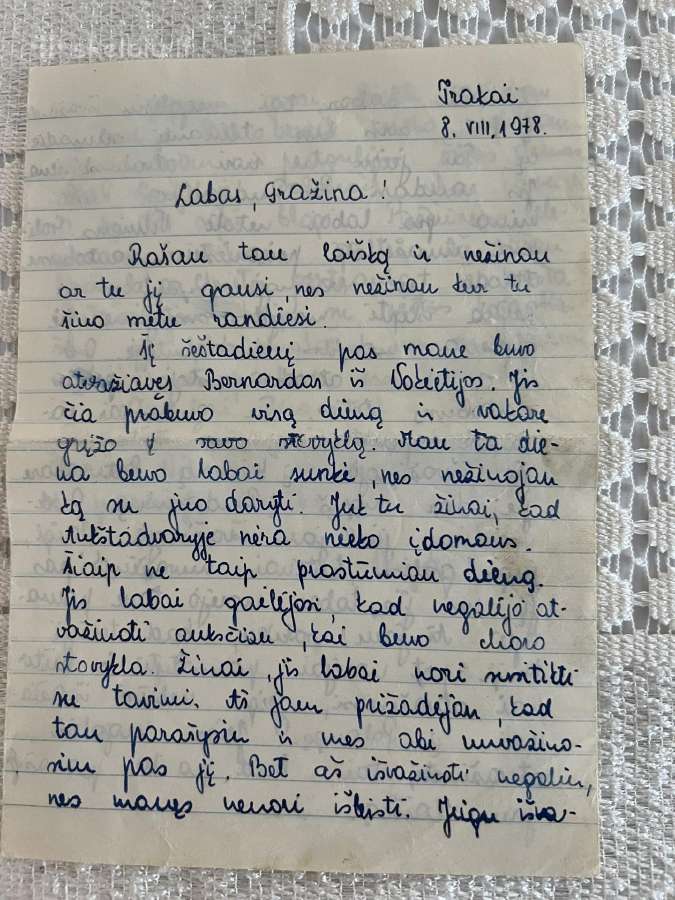 Trakai
8. VIII. 1978.
Labas, Gražina!
Rašau tau laišką ir nežinau
ar tu jį gausi, nes nežinau kur tu
šiuo metu randiesi.
Šį šeštadienį pas mane buvo
atvažiavęs Bernardas iš Vokietijos. Jis
čia prabuvo visą dieną ir vakare
grįžo į savo stovyklą. Man ta die-
na buvo labai sunki, nes nežinojau
ką su juo daryti. Juk tu žinai, kad
Aukštadvaryje nėra nieko įdomaus.
Šiaip ne taip prastūmiau dieną.
Jis labai gailėjosi, kad negalėjo at-
važiuoti anksčiau, kai buvo
stovykla. Žinai, jis labai nori susitikti
su tavimi. Aš jam prižadėjau, kad
tau parašysiu ir mes abi nuvažiuo-
sim pas jį. Bet aš išvažiuoti negaliu,
nes manęs nenori išleisti. Jeigu išva-